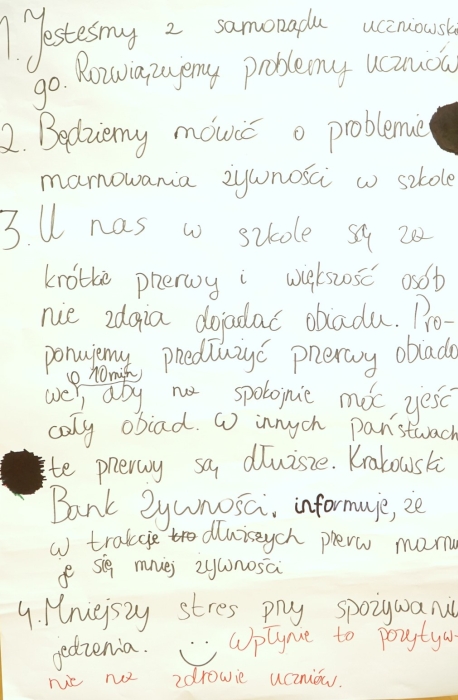 1. Jesteśmy z samorządu uczniowski
go. Rozwiązujemy problemy uczniów
2. Będziemy mówić o problemie
marnowania żywności w szkole
3. U nas w szkole są za
krótkie przerwy i większość osób
nie zdąża dojadać obiadu. Pro-
ponujemy predłużyć przerwy obiado
o 10 min
we, aby na spokojnie móc zjeść
cały obiad. W innych państwach
te przerwy są dłuższe. Krakowski
Bank Żywności, informuje, że
w trakcje dłuższych przerw marnu
je się mniej żywności
4. Mniejszy stres przy spożywaniu
jedzenia. Wpłynie to pozytyw-
nie na zdrowie uczniów.